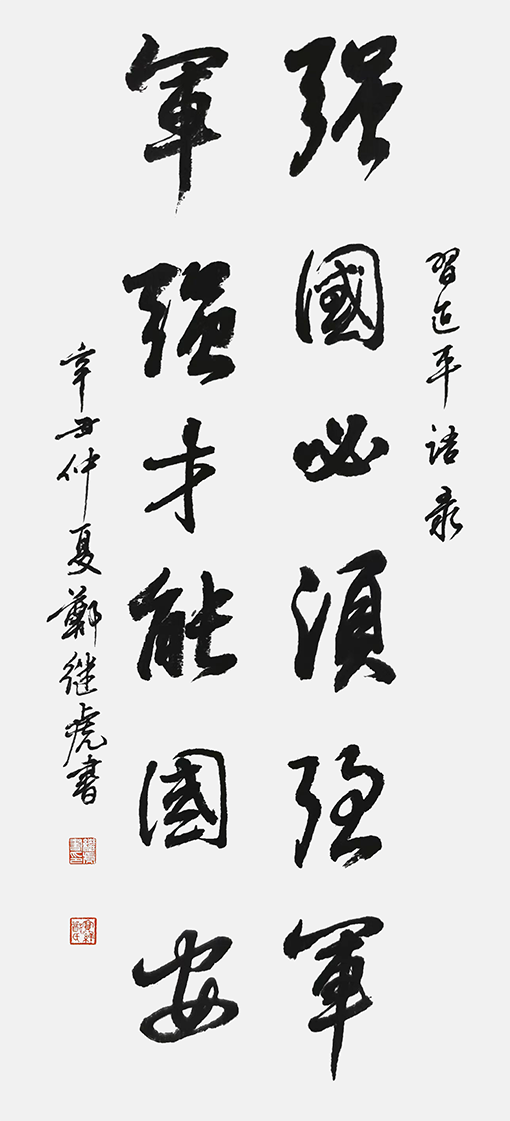 習近平语录
强國必须强軍
軍强才能國安
辛丑仲夏鄭继虎書